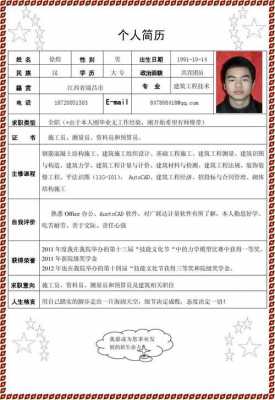 个人简历
姓 名 徐辉 性 别 男 出生日期 1991-10-14
民 族 汉 学 历 大 专 政治面貌 共青团员
籍 贯 江西省瑞昌市 专 业 建筑工程技术
电 话 E-mail
求职类型 全职(*由于本人刚毕业无工作经验,刚开始希望有师傅带)
证 书 施工员、测量员、资料员和预算员。
主修课程 钢筋混凝土结构施工、建筑施工组织设计、基础工程施工、建筑工程测量、建筑识图
与构造、建筑力学、建筑工程计量与计价、建筑材料与检测、建筑工程法规、装饰装
修工程、平法识图(11G-101)、AutoCAD、建筑工程经济、招投标与合同管理、砌体
结构施工
自我评价 熟悉 Office 办公、AutoCAD 软件,对广联达计量软件有所了解。本人勤恳好学、
吃苦耐劳、善于交际、责任心强
获得荣誉 2011 年度我在我院举办的第十三届“技能文化节”中的力学模型比赛中获得一等奖。
2011 年获院级奖学金
2012 年也在我院举办的第十四届“技能文化节获得三等奖和院级奖学金。
求职意向 施工员、资料员、测量员和预算员及建筑相关职位
人生格言 用自己踏实的脚步走出一片海阔天空;细节决定成败,态度决定一切!
我愿成为您事业发
展的新生命力